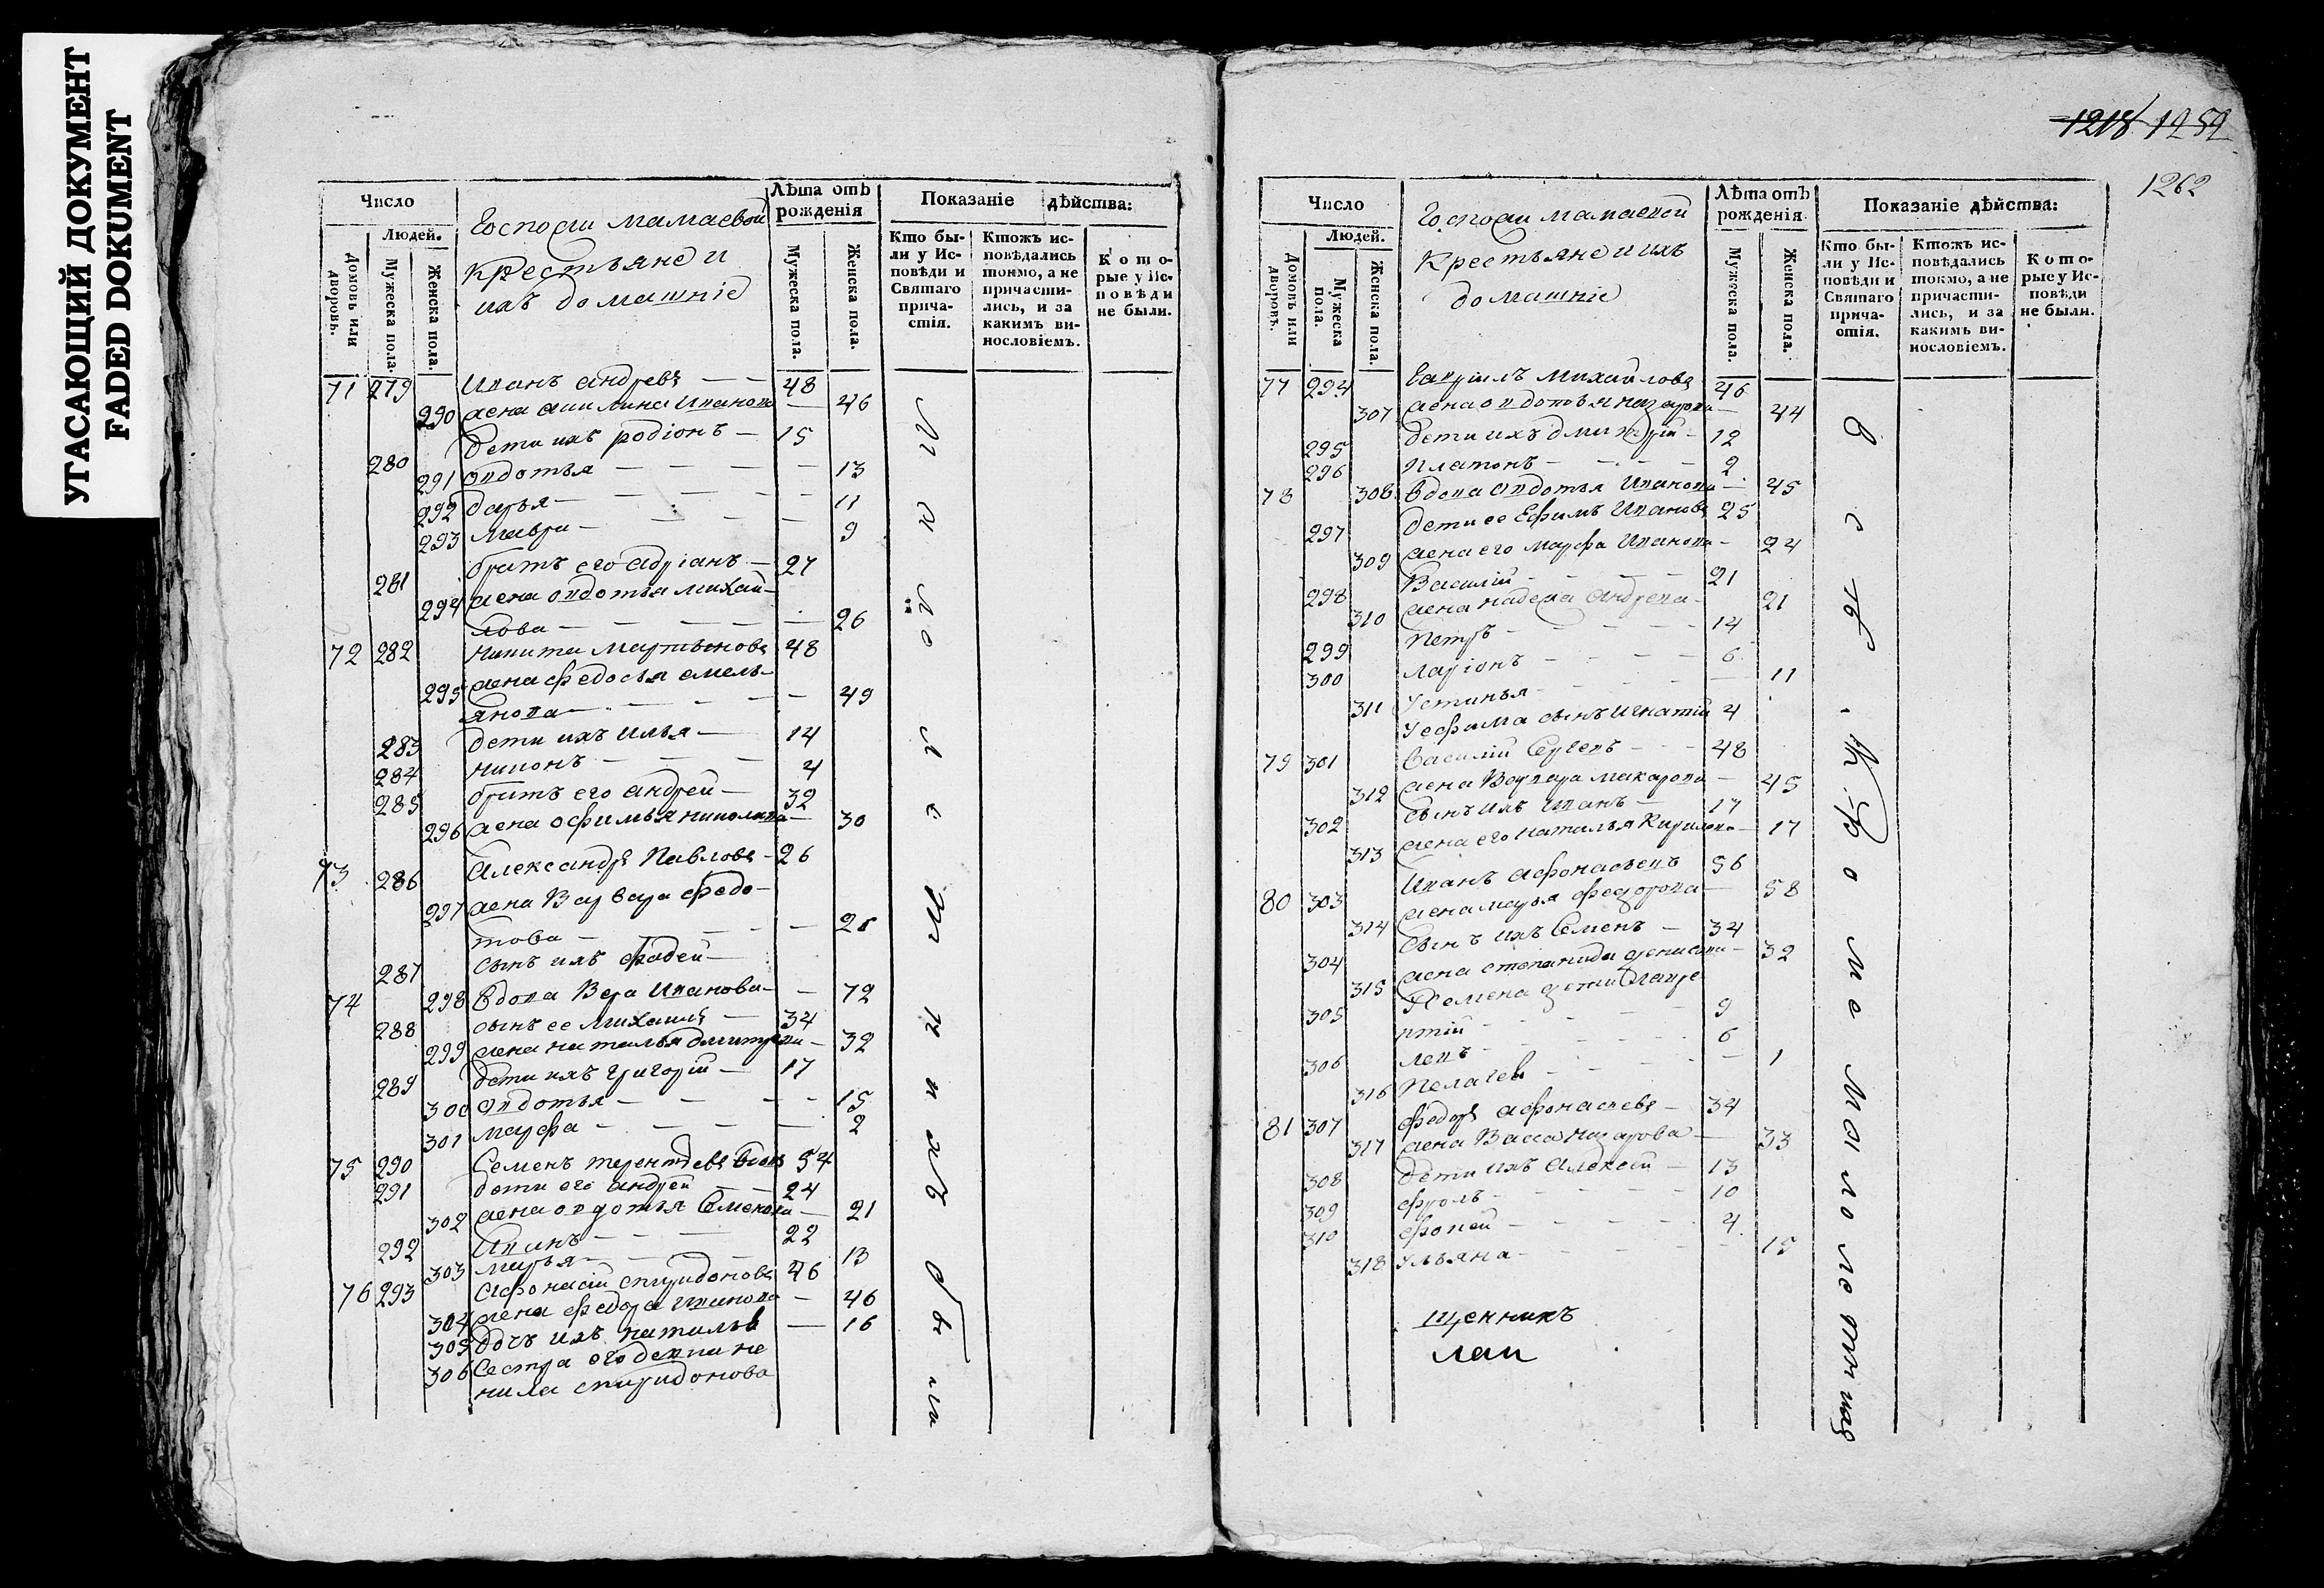 УГАСАЮЩИЙ ДОКУМЕНТ
FADED DOKUMENT
Число
Людей.
Домовъ или дворовъ.
Мужеска пола.
Женска пола.
Госпожи мамаевой
крестьяне и
ихъ домашніе
Лѣта отъ рожденія
Мужеска пола.
Женска пола.
Показаніе дѣйства:
Кто были у Исповѣди и Святаго причастія.
Ктожъ исповѣдались токмо, а не причастились, и за какимъ винословіемъ.
Которые у Исповѣди не были.
71 279 Иванъ андревъ — — 48
290 жена Ивано — 46
280 дети ихъ родіонъ — 15
291 овдотья — — — — 13
292 дарья — — — — 11
293 мавра — — — — 9
281 братъ его адріанъ — 27
294 жена овдотья михай-
лова — — — — 26
72 282 никита мартыновъ 48
295 жена федосья емель-
янова — — — — 49
283 дети ихъ илья — 14
284 — — — 4
285 братъ его андреи — 32
296 жена офимья — 30
73 286 Александръ Павловъ - 26
297 жена Варвара федо-
това — — — —
287 сынъ ихъ фадеи —
74 298 вдова Вера Иванова — — 72
288 сынъ ее михаила — 34
299 жена наталья — 32
289 дети ихъ григорій — 17
300 овдотья — — — — 15
301 марфа — — — — 2
75 290 Семенъ терентьевъ вдовъ 54
291 дети его андреи — — 24
302 жена овдотья Семенова — 21
292 Иванъ — — — 22
303 марья — — — 13
76 293 Афонасій спиридоновъ 46
304 жена федора иванова — 46
305 дочь ихъ наталья — 16
306 Сестра его не
нила спиридонова
1218 1252
1262
Число
Людей.
Домовъ или дворовъ.
Мужеска пола.
Женска пола.
Госпожи мамаевой
крестьяне и ихъ
домашніе
Лѣта отъ рожденія.
Мужеска пола.
Женска пола.
Показаніе дѣйства:
Кто были у Исповѣди и Святаго причастія.
Ктожъ исповѣдались токмо, а не причастились, и за какимъ винословіемъ.
Которые у Исповѣди не были.
77 294 Гаврилъ Михайловъ 46
307 жена овдотья назарова — 44
295 дети ихъ дмитрій — 12
296 Платонъ — — — 2
78 308 вдова овдотья Иванова — 45
297 дети ее Ефимъ Ивановъ 25
309 жена его марфа Иванова — 24
298 Василій — — — 21
310 жена андрева — 21
299 Петръ — — — — 14
300 Ларіонъ — — — — 6
311 Устинья — — — — 11
У ефима сынъ игнатій 4
79 301 Василій Сергевъ — — 48
312 жена Варвара макарова — 45
302 сынъ ихъ Иванъ — 17
313 жена его наталья Кирилова — 17
80 303 Иванъ афонасьевъ 56
314 жена марья федорова — 58
304 Сынъ ихъ Семенъ — 34
315 жена степанида денисова — 32
305 У Семена дети Лавре
нтій — — — — 9
306 левъ — — — — 6
316 Пелагея — — — — 1
81 307 федоръ афонасьевъ — 34
317 жена Васса назарова — 33
308 дети ихъ алексеи — 13
309 фролъ — — — — 10
310 — — — — 4
318 Ульяна — — — — 15
щенникъ
лаи